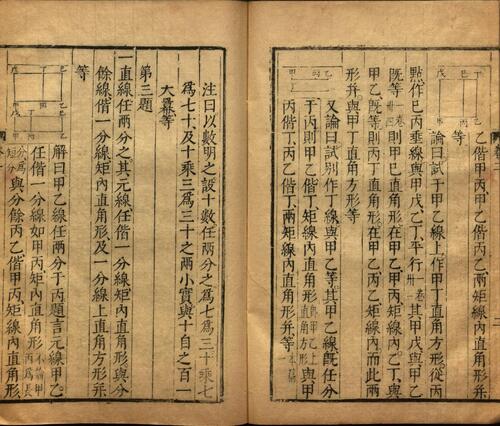 乙偕甲丙甲乙偕丙乙兩矩線內直角形幷
等
論曰試于甲乙線上作甲丁直角方形從丙
點作己丙垂線與甲戊乙丁平行一卷卅一其甲戊與甲乙
既等一卷卅四則甲己直角形在甲乙甲丙矩線內乙丁與
甲乙既等則丙丁直角形在甲乙丙乙矩線內而此兩
形幷與甲丁直角方形等
又論曰試別作丁線與甲乙等其甲乙線既任分
于丙則甲乙偕丁矩線內直角形與甲
丙偕丁丙乙偕丁兩矩線內直角形幷等本篇一
注曰以數明之設十數任兩分之爲七爲三十乘七
爲七十及十乘三爲三十之兩小實與十自之百一
大冪等
第三題
一直線任兩分之其元線任偕一分線矩內直角形與分
餘線偕一分線矩內直角形及一分線上直角方形幷
等
解曰甲乙線任兩分于丙題言元線甲乙
任偕一分線如甲丙矩內直角形不論甲丙爲長
分爲短分與分餘丙乙偕甲丙矩線內直角形